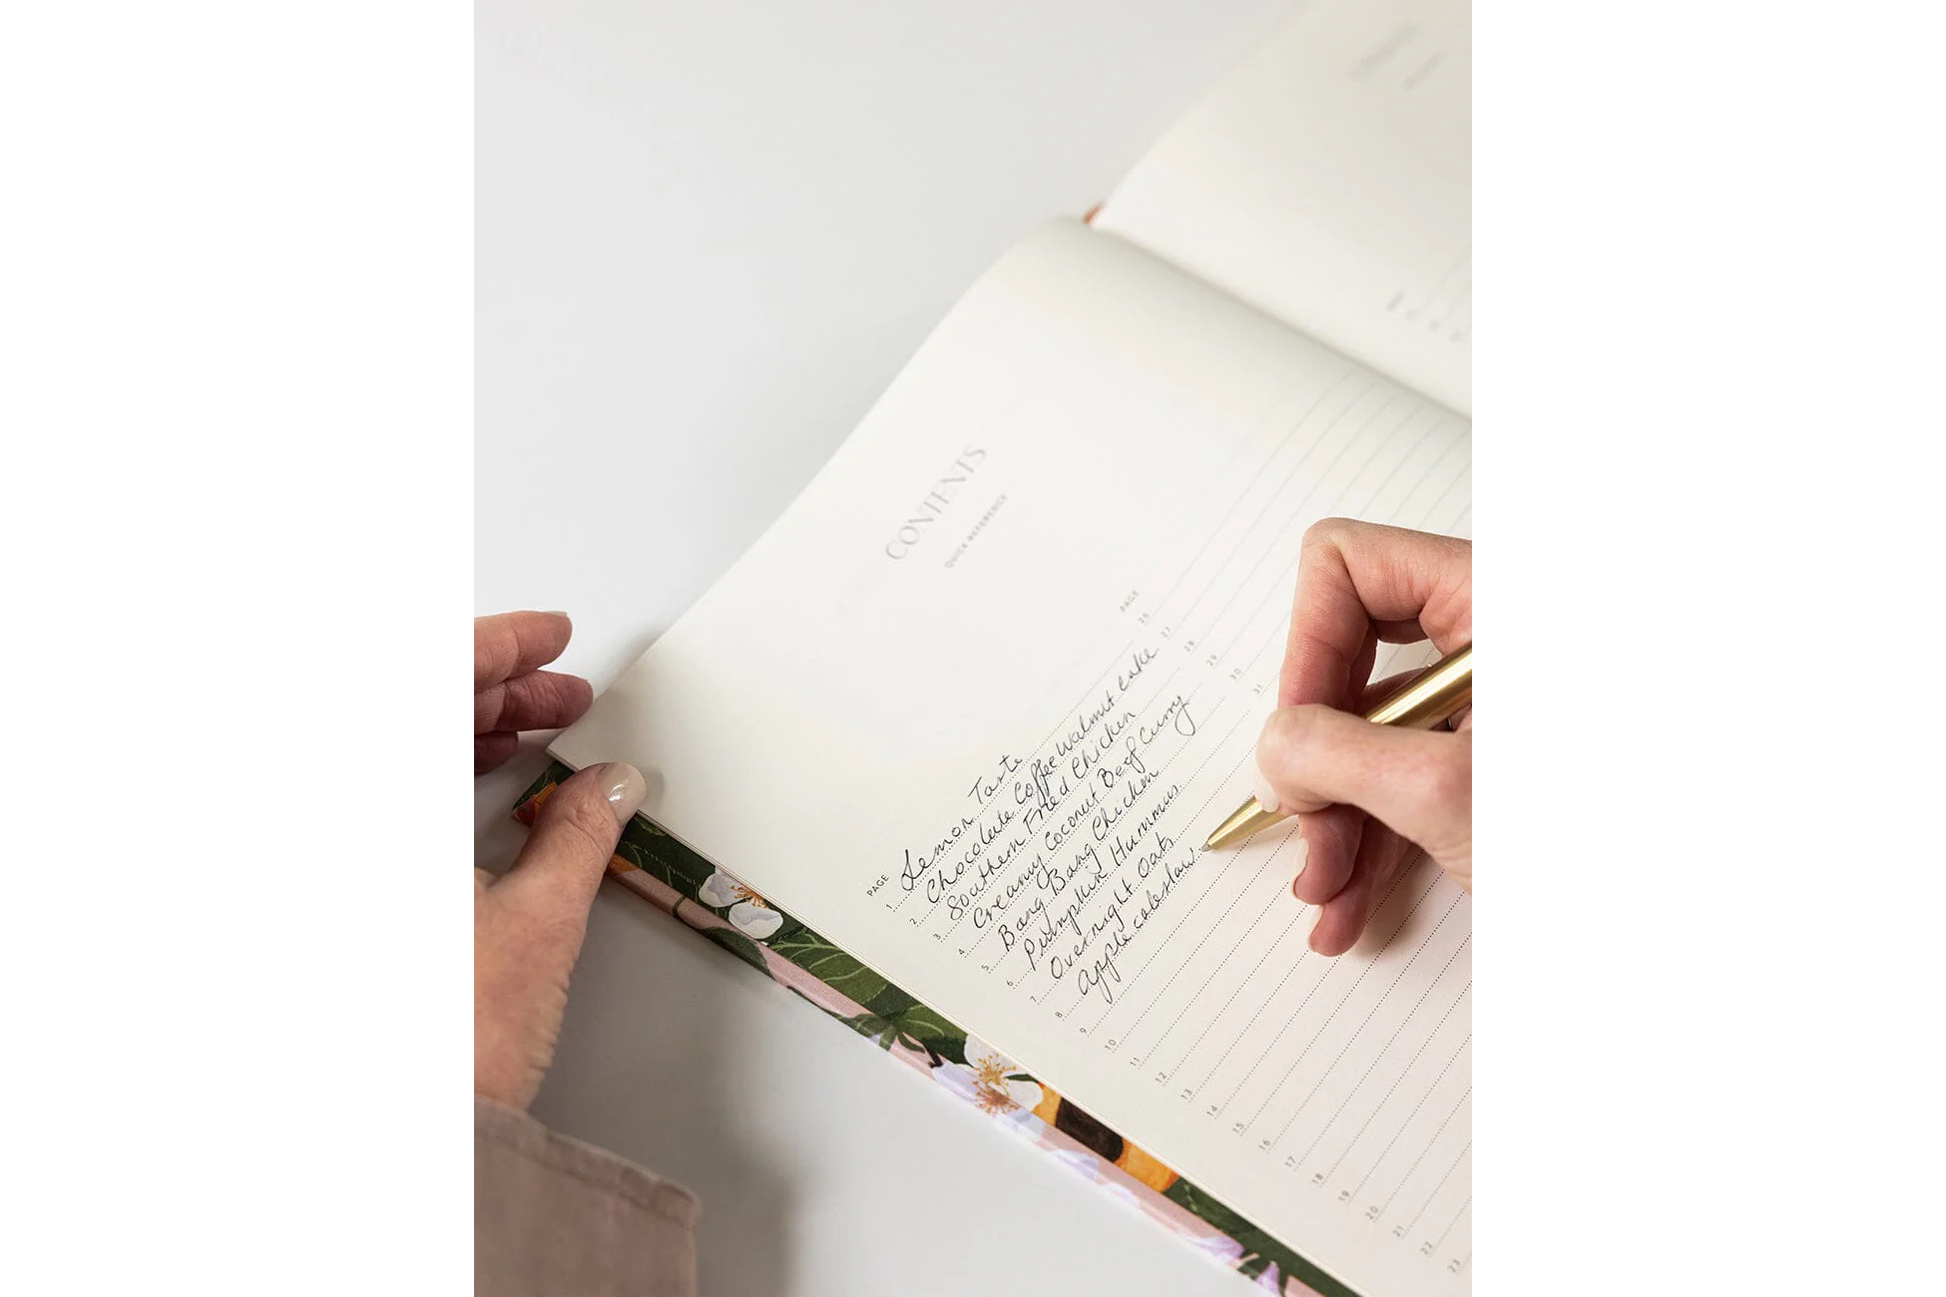 CONTENTS
QUICK REFERENCE
PAGE
1 Lemon Tarte
2 Chocolate Coffee Walnut Cake
3 Southern Fried Chicken
4 Creamy Coconut Beef Curry
5 Bang Bang Chicken
6 Pumpkin Hummus
7 Overnight Oats
8 Apple coleslaw
9
10
11
12
13
14
15
16
17
18
19
20
21
22
23
PAGE
26
27
28
29
30
31